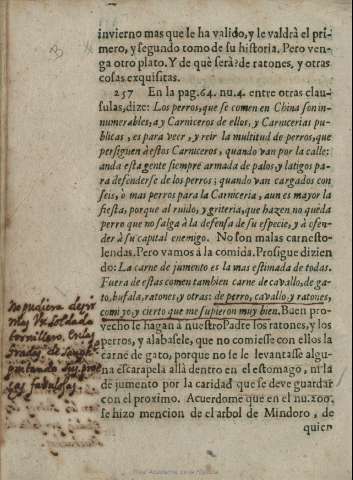 invierno mas que le ha valido, y le valdrà el pri-
mero, y segundo tomo de su historia. Pero ven-
ga otro plato. Y de què serà? de ratones, y otras
cosas exquisitas.
257 En la pag. 64. nu. 4. entre otras clau-
sulas, dize: Los perros, que se comen en China son in-
numerables, ay Carniceros de ellos, y Carnicerias pu-
blicas, es para veer, y reir la multitud de perros, que
persiguen à estos Carniceros, quando van por la calle:
anda esta gente siempre armada de palos, y latigos pa-
ra defenderse de los perros; quando van cargados con
seis, ò mas perros para la Carniceria, aun es mayor la
fiesta, porque al ruido, y griteria, que hazen, no queda
perro que no salga à la defensa de su especie, y à ofen-
der à su capital enemigo. No son malas carnesto-
lendas. Pero vamos à la comida. Prosigue dizien
do: La carne de jumento es la mas estimada de todas.
Fuera de estas comen tambien carne de cavallo, de ga-
to, bufala, ratones, y otras: de perro, cavallo, y ratones,
comi yo, y cierto que me supieron muy bien. Buen pro-
vecho le hagan à nuestro Padre los ratones, y los
perros, y alabasele, que no comiesse con ellos la
carne de gato, porque no se le levantasse algu-
na escarapela allà dentro en el estomago, ni la
de jumento por la caridad que se deve guardar
con el proximo. Acuerdome que en el nu. 200.
se hizo mencion de el arbol de Mindoro, de
quien
No pudiera desir
mas Vn Soldado
tornillero. en las
Gradas de
sus
fabulosas.
Real Academia de la Historia